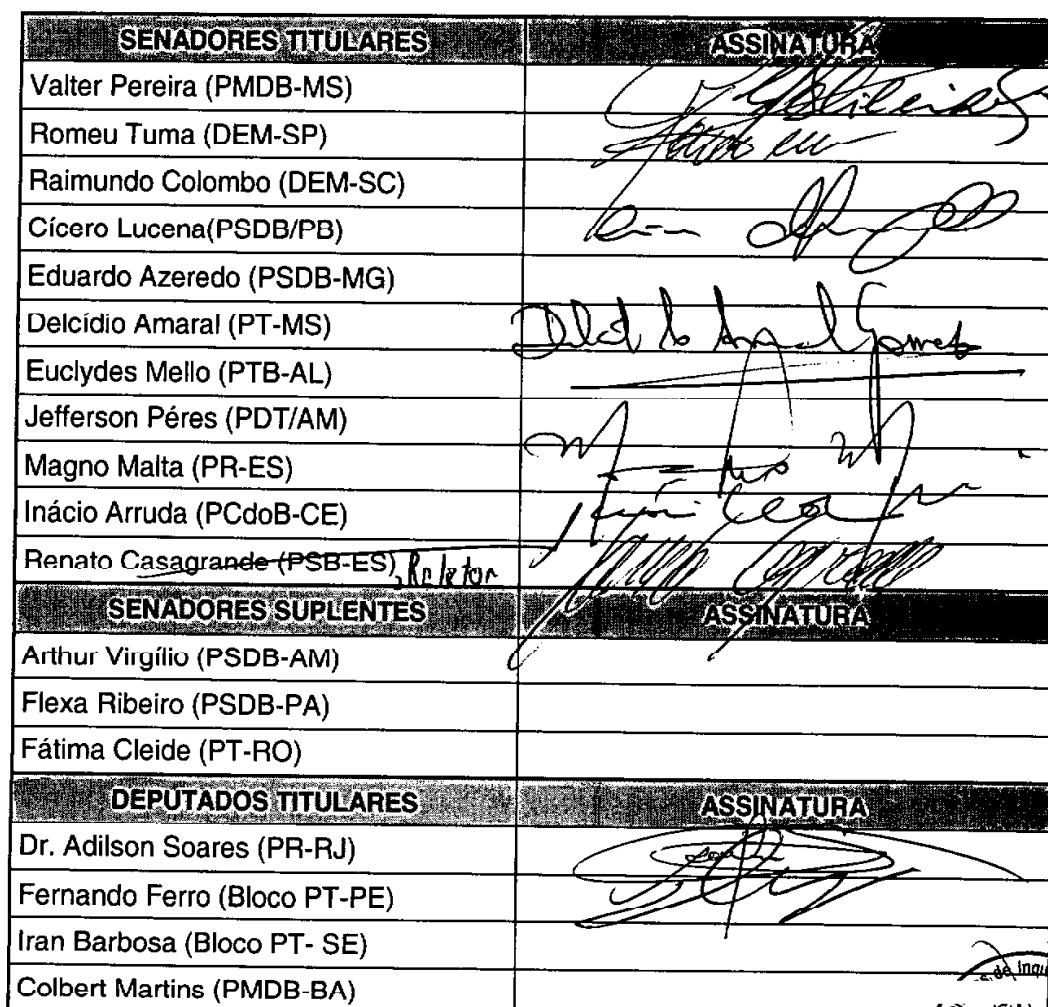 SENADORES TITULARES ASSINATURA
Valter Pereira (PMDB-MS)
Romeu Tuma (DEM-SP)
Raimundo Colombo (DEM-SC)
Cícero Lucena(PSDB/PB)
Eduardo Azeredo (PSDB-MG)
Delcídio Amaral (PT-MS)
Euclydes Mello (PTB-AL)
Jefferson Péres (PDT/AM)
Magno Malta (PR-ES)
Inácio Arruda (PCdoB-CE)
Renato Casagrande (PSB-ES), Relator
SENADORES SUPLENTES ASSINATURA
Arthur Virgílio (PSDB-AM)
Flexa Ribeiro (PSDB-PA)
Fátima Cleide (PT-RO)
DEPUTADOS TITULARES ASSINATURA
Dr. Adilson Soares (PR-RJ)
Fernando Ferro (Bloco PT-PE)
Iran Barbosa (Bloco PT- SE)
Colbert Martins (PMDB-BA)